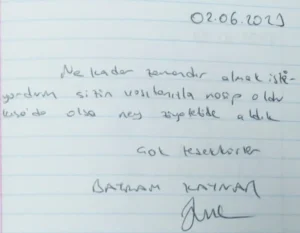 02.06.2021
Ne kadar zamandır almak isti-
yordum sizin vasıtanızla nasip oldu
kısa da olsa ney ziyafeti de aldık
Çok teşekkürler
BAYRAM KAYNAR